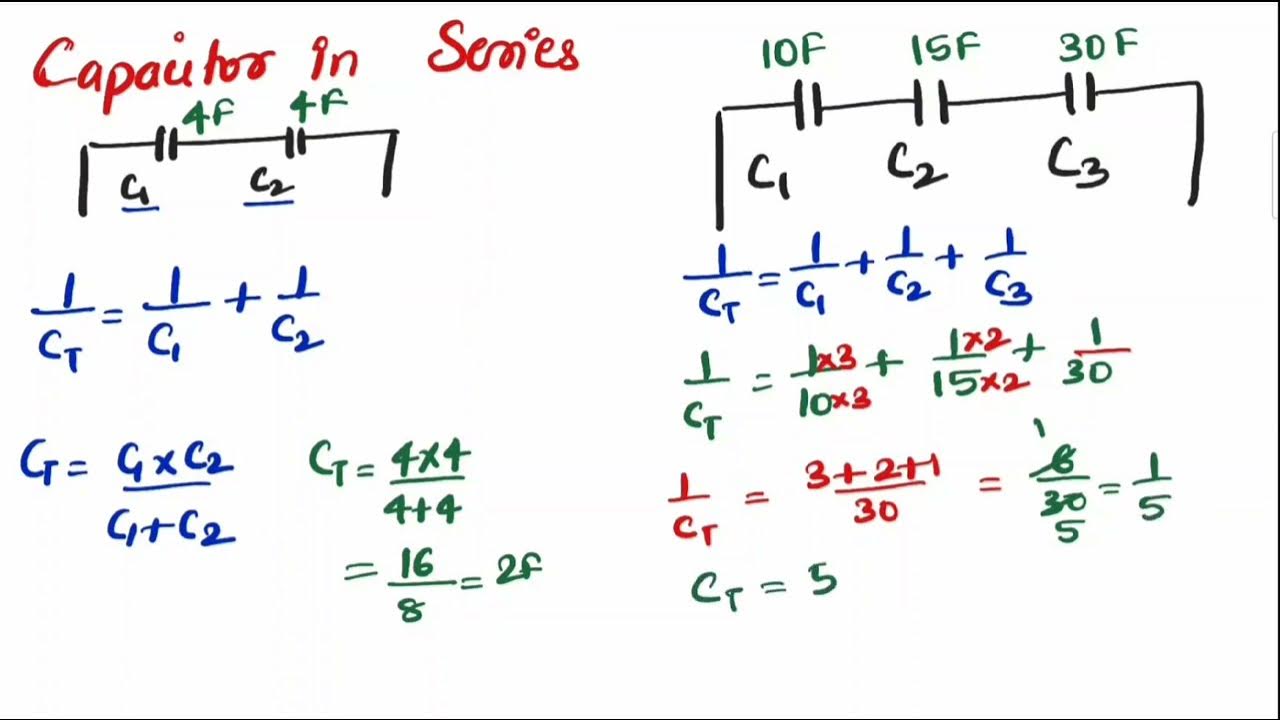 Capacitor in Series
4F 4F
C1 C2
1/CT = 1/C1 + 1/C2
CT = C1 x C2 / C1 + C2
CT = 4x4 / 4+4
= 16/8 = 2F
10F 15F 30F
C1 C2 C3
1/CT = 1/C1 + 1/C2 + 1/C3
1/CT = 1x3/10x3 + 1x2/15x2 + 1/30
1/CT = 3+2+1/30 = 6/30 = 1/5
1
5
CT = 5